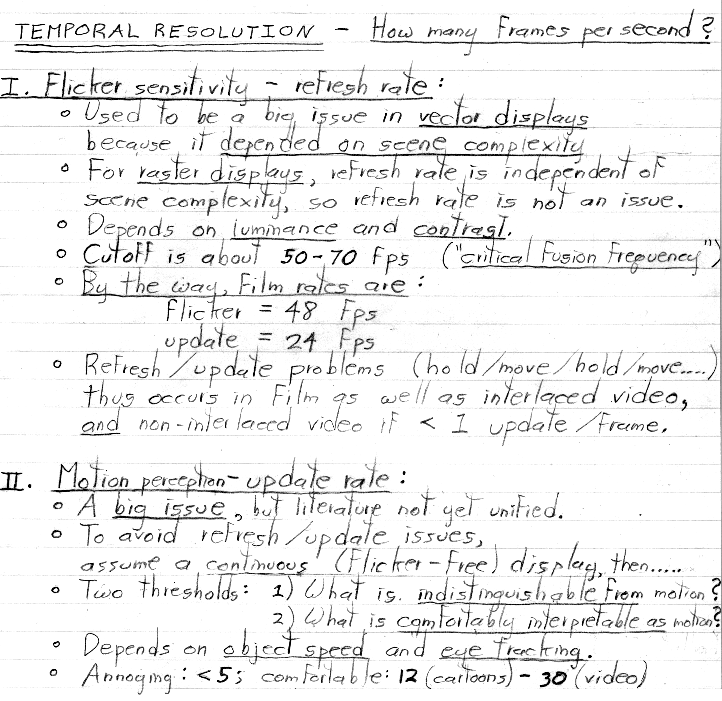 TEMPORAL RESOLUTION - How many frames per second?
I. Flicker sensitivity - refresh rate:
• Used to be a big issue in vector displays
because it depended on scene complexity
• For raster displays, refresh rate is independent of
scene complexity, so refresh rate is not an issue.
• Depends on luminance and contrast.
• Cutoff is about 50-70 fps ("critical fusion frequency")
• By the way, film rates are:
flicker = 48 fps
update = 24 fps
• Refresh/update problems (hold/move/hold/move....)
thus occurs in film as well as interlaced video,
and non-interlaced video if < 1 update/frame.
II. Motion perception - update rate:
• A big issue, but literature not yet unified.
• To avoid refresh/update issues,
assume a continuous (flicker-free) display, then.....
• Two thresholds: 1) What is indistinguishable from motion?
2) What is comfortably interpretable as motion?
• Depends on object speed and eye tracking.
• Annoying: <5; comfortable: 12 (cartoons) - 30 (video)